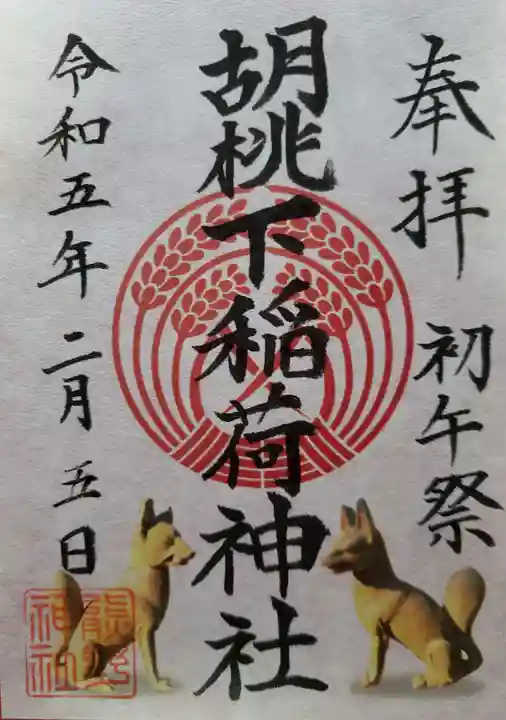 奉拝 初午祭
胡桃下稲荷神社
令和五年二月五日
熊野神社